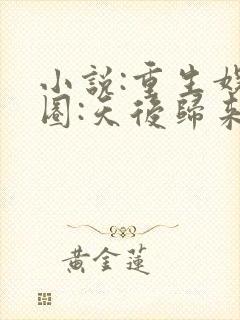 小說:重生娛
圈:天後歸來
黃金蓮